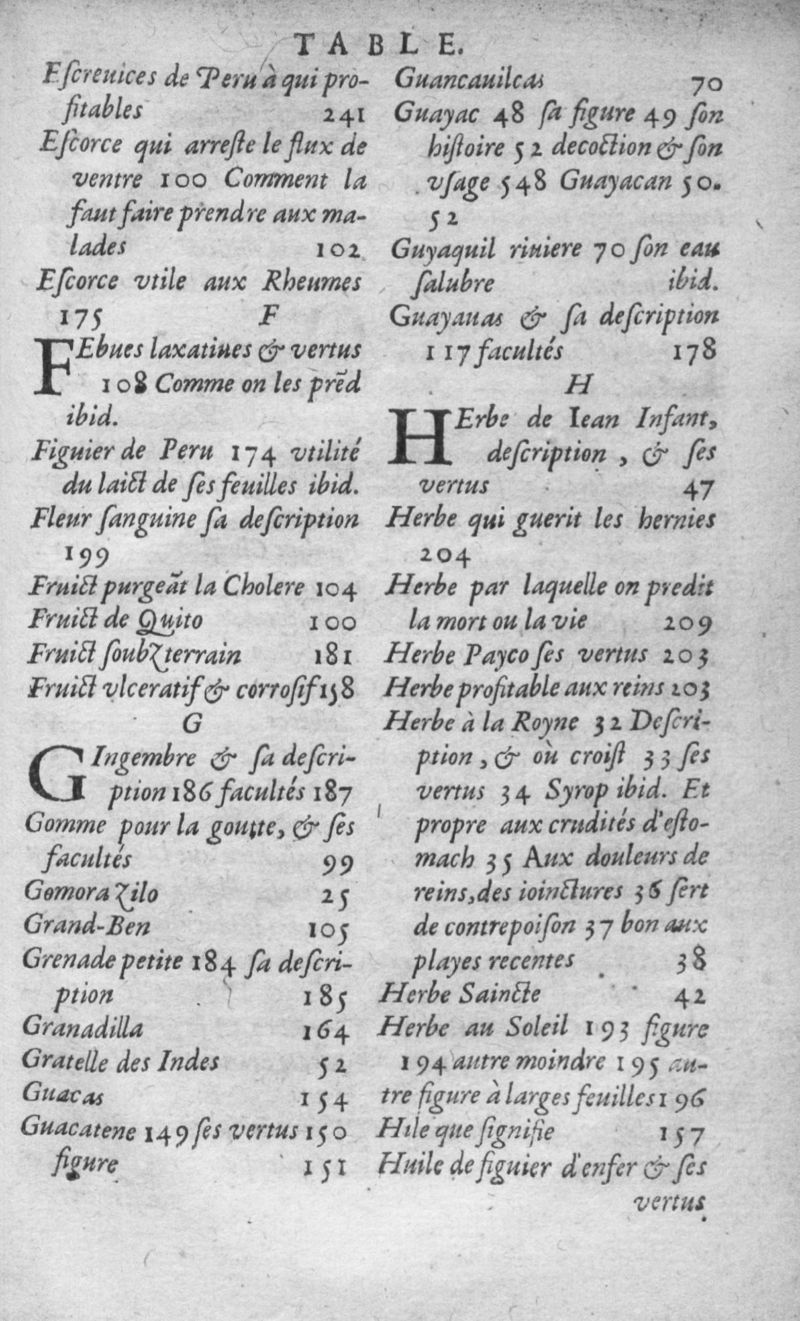 TABLE.
Eſcreuices de Peru à qui pro-
fitables 241
Eſcorce qui arreſte le flux de
ventre 100 Comment la
faut faire prendre aux ma-
lades 102
Eſcorce vtile aux Rheumes
175 F
FEbues laxatiues & vertus
108 Comme on les prẽd
ibid.
Figuier de Peru 174 vtilité
du laict de ſes feuilles ibid.
Fleur ſanguine ſa deſcription
199
Fruict purgeãt la Cholere 104
Fruict de Quito 100
Fruict ſoubZterrain 181
Fruict vlceratif & corroſif 158
G
GIngembre & ſa deſcri-
ption 186 facultés 187
Gomme pour la goutte, & ſes
facultés 99
Gomora Zilo 25
Grand-Ben 105
Grenade petite 184 ſa deſcri-
ption 185
Granadilla 164
Gratelle des Indes 52
Guacas 154
Guacatene 149 ſes vertus 150
figure 151
Guancauilcas 70
Guayac 48 ſa figure 49 ſon
hiſtoire 52 decoction & ſon
vſage 548 Guayacan 50.
52
Guyaquil riuiere 70 ſon eau
ſalubre ibid.
Guayauas & ſa deſcription
117 facultés 178
H
HErbe de Iean Infant,
deſcription , & ſes
vertus 47
Herbe qui guerit les hernies
204
Herbe par laquelle on predit
la mort ou la vie 209
Herbe Payco ſes vertus 203
Herbe profitable aux reins 203
Herbe à la Royne 32 Deſcri-
ption , & où croiſt 33 ſes
vertus 34 Syrop ibid. Et
propre aux crudités d'eſto-
mach 35 Aux douleurs de
reins, des ioinctures 36 ſert
de contrepoiſon 37 bon aux
playes recentes 38
Herbe Saincte 42
Herbe au Soleil 193 figure
194 autre moindre 195 au-
tre figure à larges feuilles 196
Hile que ſignifie 157
Huile de figuier d'enfer & ſes
vertus